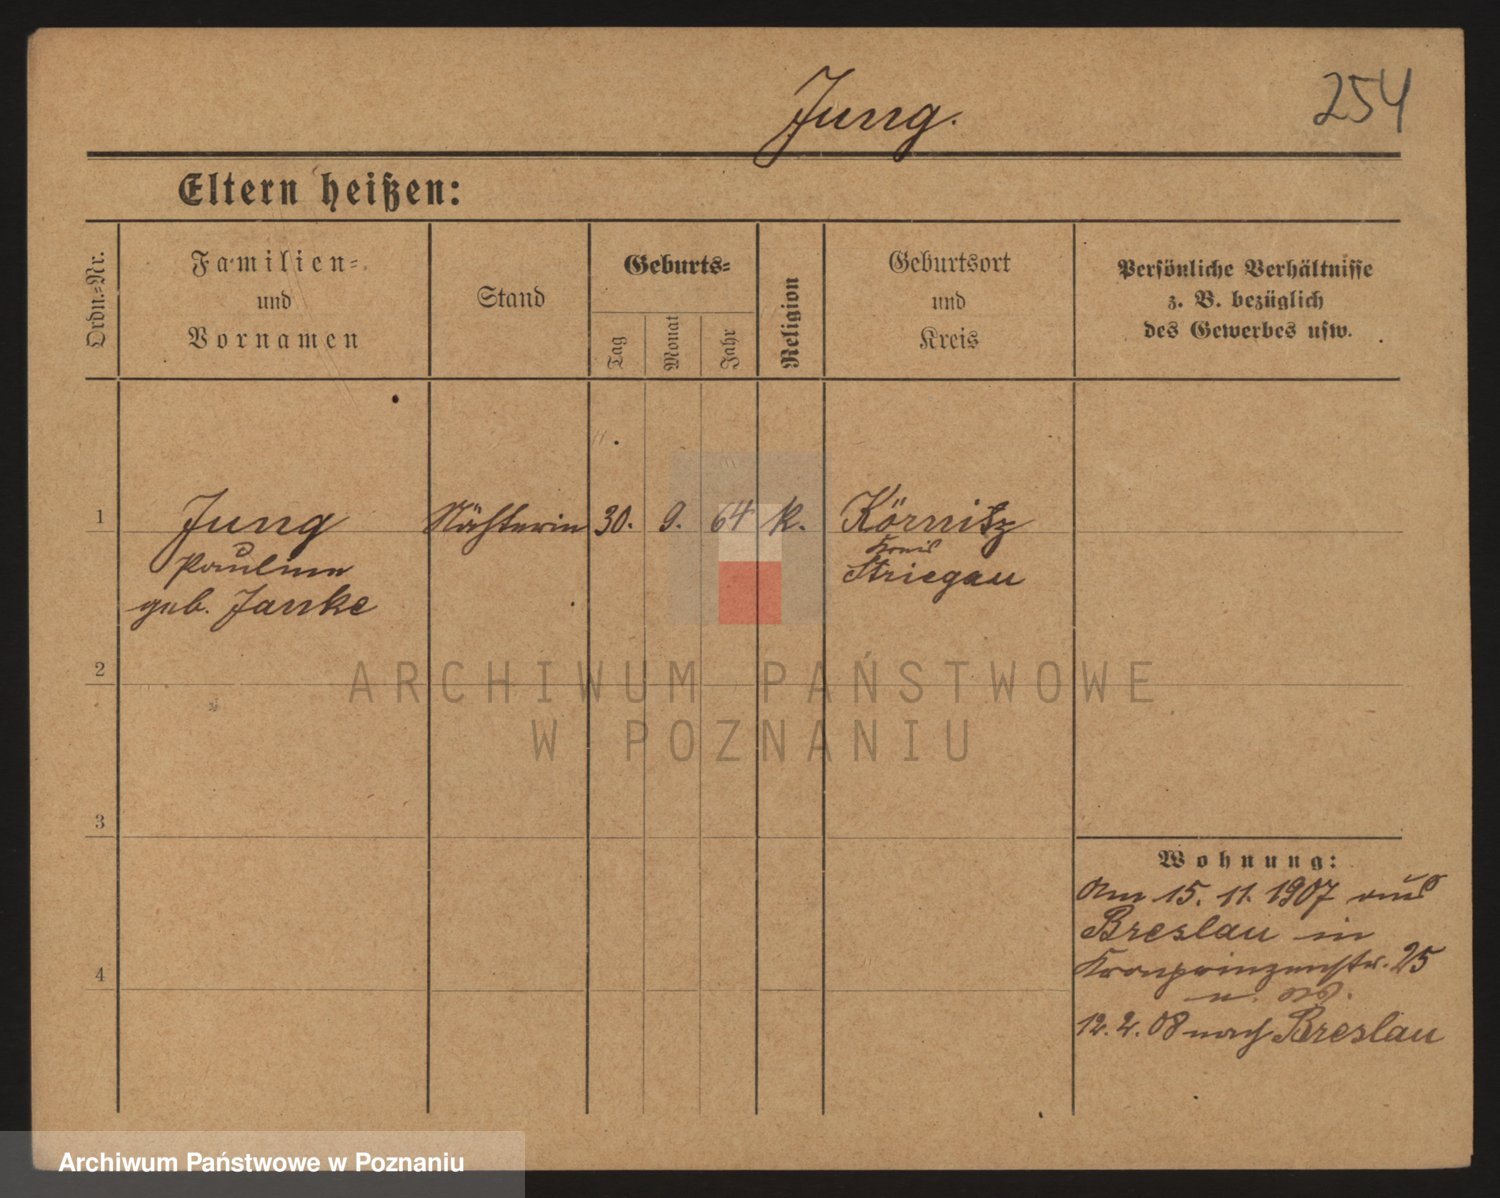 Jung.
254
Eltern heißen:
Ordn.-Nr.
Familien-
und
Vornamen
Stand
Geburts-
Tag
Monat
Jahr
Religion
Geburtsort
und
Kreis
Persönliche Verhältnisse
z. B. bezüglich
des Gewerbes usw.
1
Jung
Pauline
geb. Janke
Nähterin
30.
9.
64
k.
Körnitz
Kreis
Striegau
2
3
4
ARCHIWUM PAŃSTWOWE
W POZNANIU
Wohnung:
Am 15. 11. 1907 aus
Breslau in
Kronprinzenstr. 25
12. 2. 08 nach Breslau
Archiwum Państwowe w Poznaniu